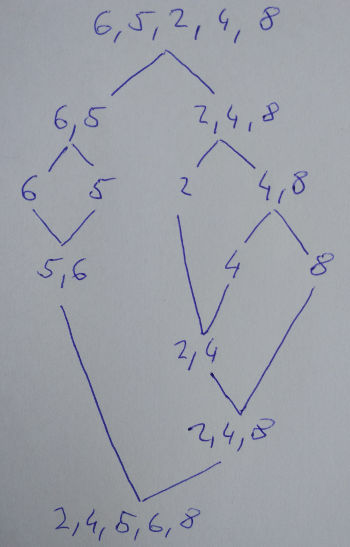 6, 5, 2, 4, 8
6, 5 2, 4, 8
6 5 2 4, 8
5, 6 4 8
2, 4
2, 4, 8
2, 4, 5, 6, 8